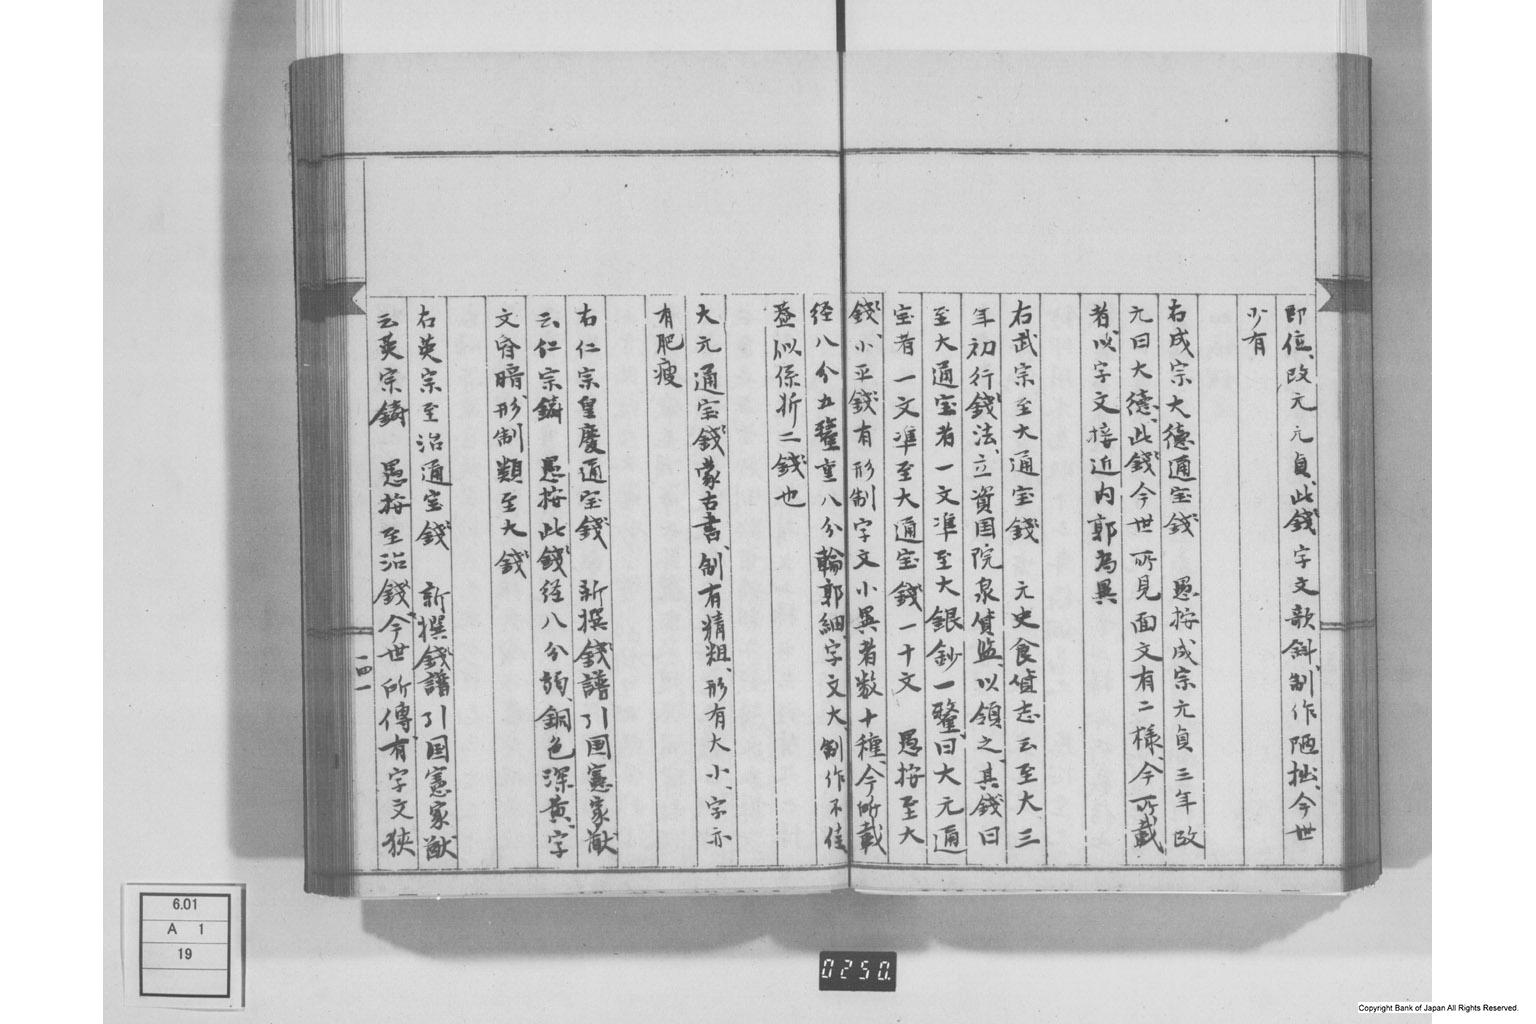 即位、改元元貞、此錢字文欹斜、制作陋拙、今世
少有
右成宗大德通宝錢　愚按成宗元貞三年改
元曰大德、此錢今世所見面文有二樣、今所載
者以字文接近内郭為異
右武宗至大通宝錢　元史食貨志云至大三
年初行錢法、立資国院泉貨監、以領之、其錢曰
至大通宝者一文準至大銀鈔一釐、曰大元通
宝者一文準至大通宝錢一十文　愚按至大
錢、小平錢有形制字文小異者数十種、今所載
径八分五釐重八分輪郭細、字文大、制作不佳
蓋似係折二錢也
大元通宝錢蒙古書、制有精粗、形有大小、字亦
有肥瘦
右仁宗皇慶通宝錢　新撰錢譜引国憲家猷
云、仁宗鑄　愚按此錢径八分弱、銅色深黄、字
文昏暗、形制類至大錢
右英宗至治通宝錢　新撰錢譜引国憲家猷
云英宗鑄　愚按至治錢、今世所傳、有字文狹
一四一
6.01
A 1
19
0250.
Copyright Bank of Japan All Rights Reserved.